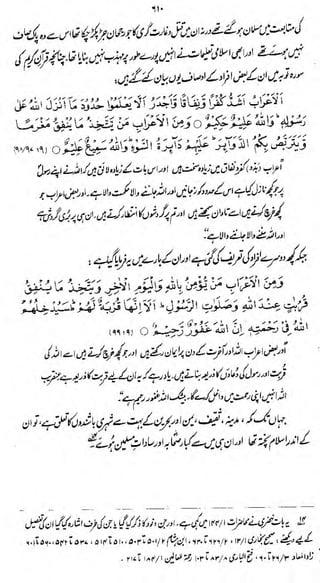 ۶۱۰
کی متابعت میں مسلمان ہو گئے تھے ورنہ ان میں قتل و غارت گری کا جو رجحان جڑ پکڑ چکا تھا اس سے وہ پاک صاف
نہیں ہوئے تھے اور ابھی اسلامی تعلیمات نے انہیں پورے طور پر مہذب نہیں بنایا تھا۔ چنانچہ قرآن کریم کی
سورہ توبہ میں ان کے بعض افراد کے اوصاف یوں بیان کئے گئے ہیں:
اَلْاَعْرَابُ اَشَدُّ كُفْرًا وَّنِفَاقًا وَّاَجْدَرُ اَلَّا يَعْلَمُوْا حُدُوْدَ مَآ اَنْزَلَ اللّٰهُ عَلٰى
رَسُوْلِهٖ ؕ وَاللّٰهُ عَلِيْمٌ حَكِيْمٌ ○ وَمِنَ الْاَعْرَابِ مَنْ يَّتَّخِذُ مَا يُنْفِقُ مَغْرَمًا
وَّيَتَرَبَّصُ بِكُمُ الدَّوَآئِرَ ؕ عَلَيْهِمْ دَآئِرَةُ السَّوْءِ ؕ وَاللّٰهُ سَمِيْعٌ عَلِيْمٌ ○ (۹: ۹۷/۹۸)
"اعراب (بدو) کفر و نفاق میں زیادہ سخت ہیں اور اس بات کے زیادہ لائق ہیں کہ اللہ نے اپنے رسول
پر جو کچھ نازل کیا ہے اس کے حدود کو نہ جانیں اور اللہ جاننے والا حکمت والا ہے۔ اور بعض اعراب جو
کچھ خرچ کرتے ہیں اسے تاوان سمجھتے ہیں اور تم پر گردشوں کا انتظار کرتے ہیں۔ ان ہی پر بری گردش ہے
اور اللہ سننے والا جاننے والا ہے۔"
جبکہ کچھ دوسرے افراد کی تعریف کی گئی ہے اور ان کے بارے میں یہ فرمایا گیا ہے:
وَمِنَ الْاَعْرَابِ مَنْ يُّؤْمِنُ بِاللّٰهِ وَالْيَوْمِ الْاٰخِرِ وَيَتَّخِذُ مَا يُنْفِقُ
قُرُبٰتٍ عِنْدَ اللّٰهِ وَصَلَوٰتِ الرَّسُوْلِ ؕ اَلَآ اِنَّهَا قُرْبَةٌ لَّهُمْ ؕ سَيُدْخِلُهُمُ
اللّٰهُ فِيْ رَحْمَتِهٖ ؕ اِنَّ اللّٰهَ غَفُوْرٌ رَّحِيْمٌ ○ (۹: ۹۹)
"اور بعض اعراب اللہ اور آخرت کے دن پر ایمان رکھتے ہیں اور جو کچھ خرچ کرتے ہیں اسے اللہ کی
قربت اور رسول کی دعاؤں کا ذریعہ بناتے ہیں۔ یاد رہے کہ یہ ان کے لیے قربت کا ذریعہ ہے عنقریب
اللہ انہیں اپنی رحمت میں داخل کرے گا۔ بیشک اللہ غفور رحیم ہے۔"
جہاں تک مکہ، مدینہ، ثقیف، یمن اور بحرین کے بہت سے شہری باشندوں کا تعلق ہے، تو ان کے
اندر اسلام پختہ تھا اور ان ہی میں سے کبار صحابہ اور سادات مسلمین ہوئے۔
یہ بات خضری نے محاضرات ۱/۱۴۴ میں کہی ہے، اور جن وفود کا ذکر کیا گیا یا جن کی طرف اشارہ کیا گیا ان کی تفصیل
کے لیے دیکھئے: صحیح بخاری
زاد المعاد ۳/۲۶ تا ۶۰، فتح الباری ۸/۸۳ تا ۱۰۳، رحمۃ للعالمین ۱/۱۸۴ تا ۲۱۷۔